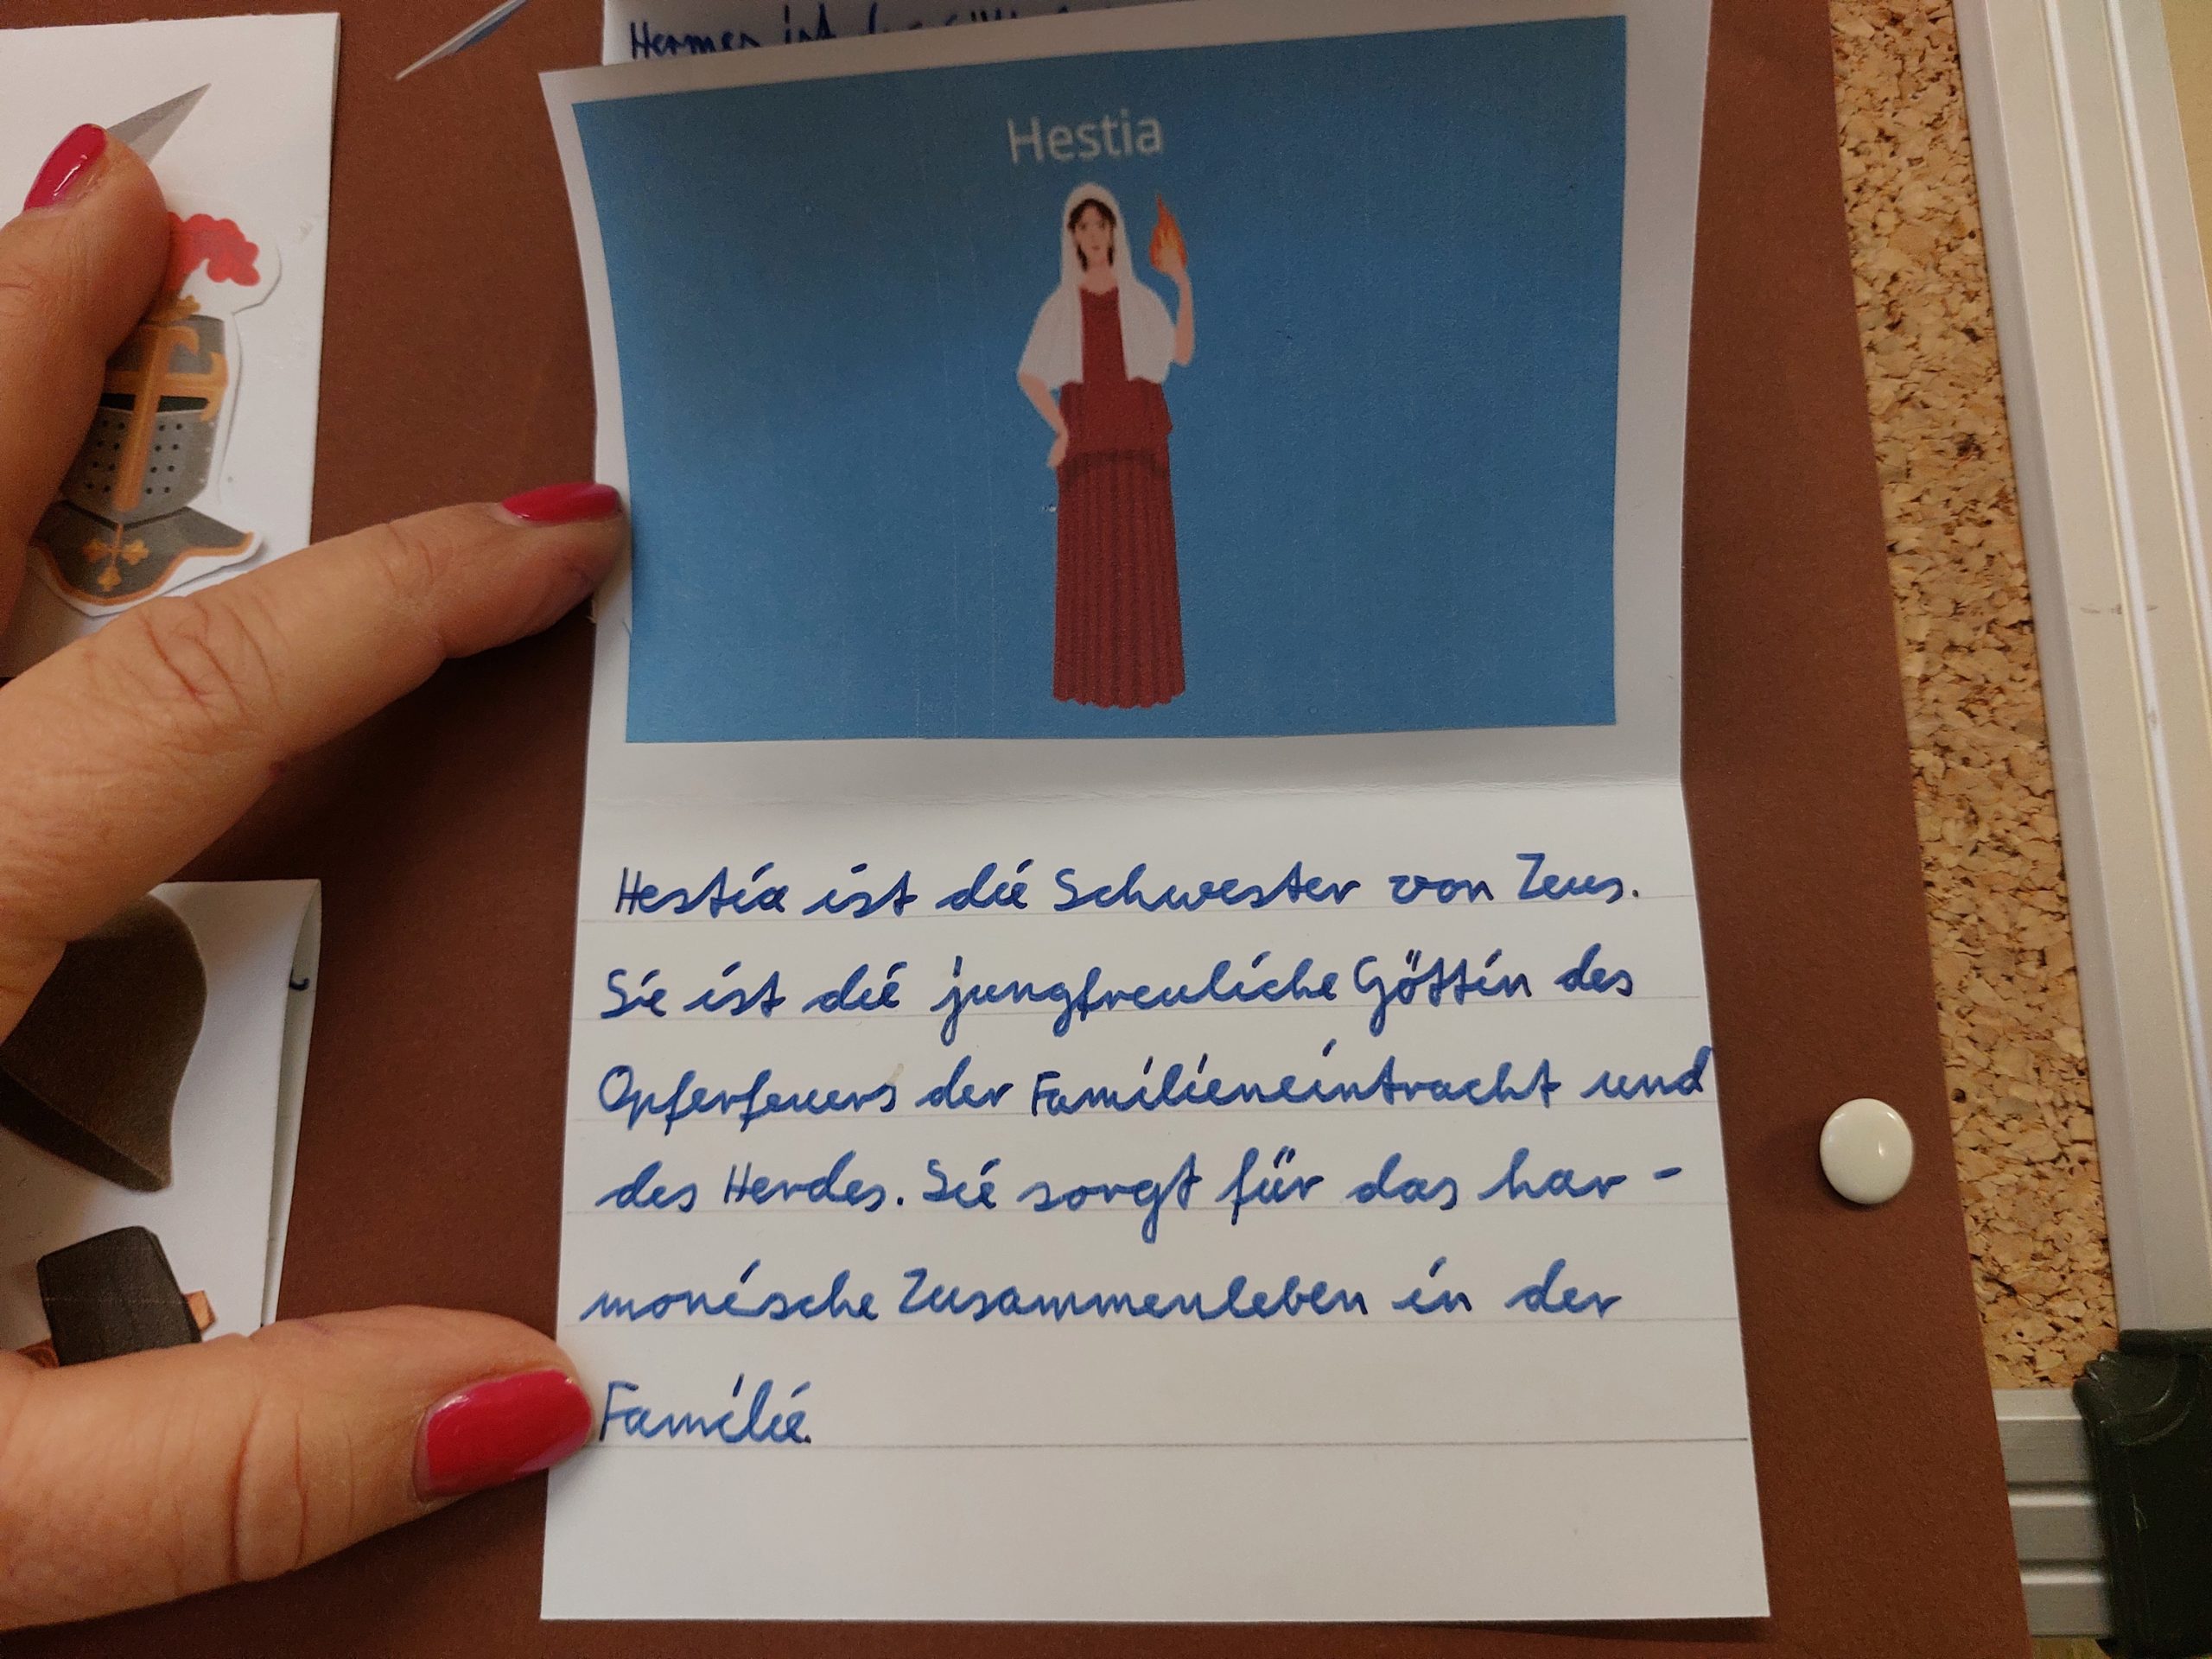 Hermes ist
Hestia
Hestia ist die Schwester von Zeus.
Sie ist die jungfreuliche Göttin des
Opferfeuers der Familieneintracht und
des Herdes. Sie sorgt für das har-
monische Zusammenleben in der
Familie.